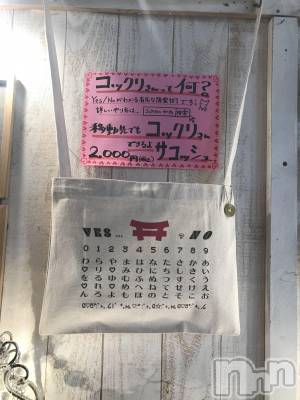 コックリさんって何？
Yes/Noがわかる有名な降霊術でそ！
詳しいやり方は、
移動先でもコックリさん
できるよ
2,000円(税込)サコッシュ
VES... NO
0 1 2 3 4 5 6 7 8 9
わらやまはなたさかあ
りみひにちしきい
をるゆむふぬつすくう
れめへねてせけえ
んろよもほのとそこお
nn